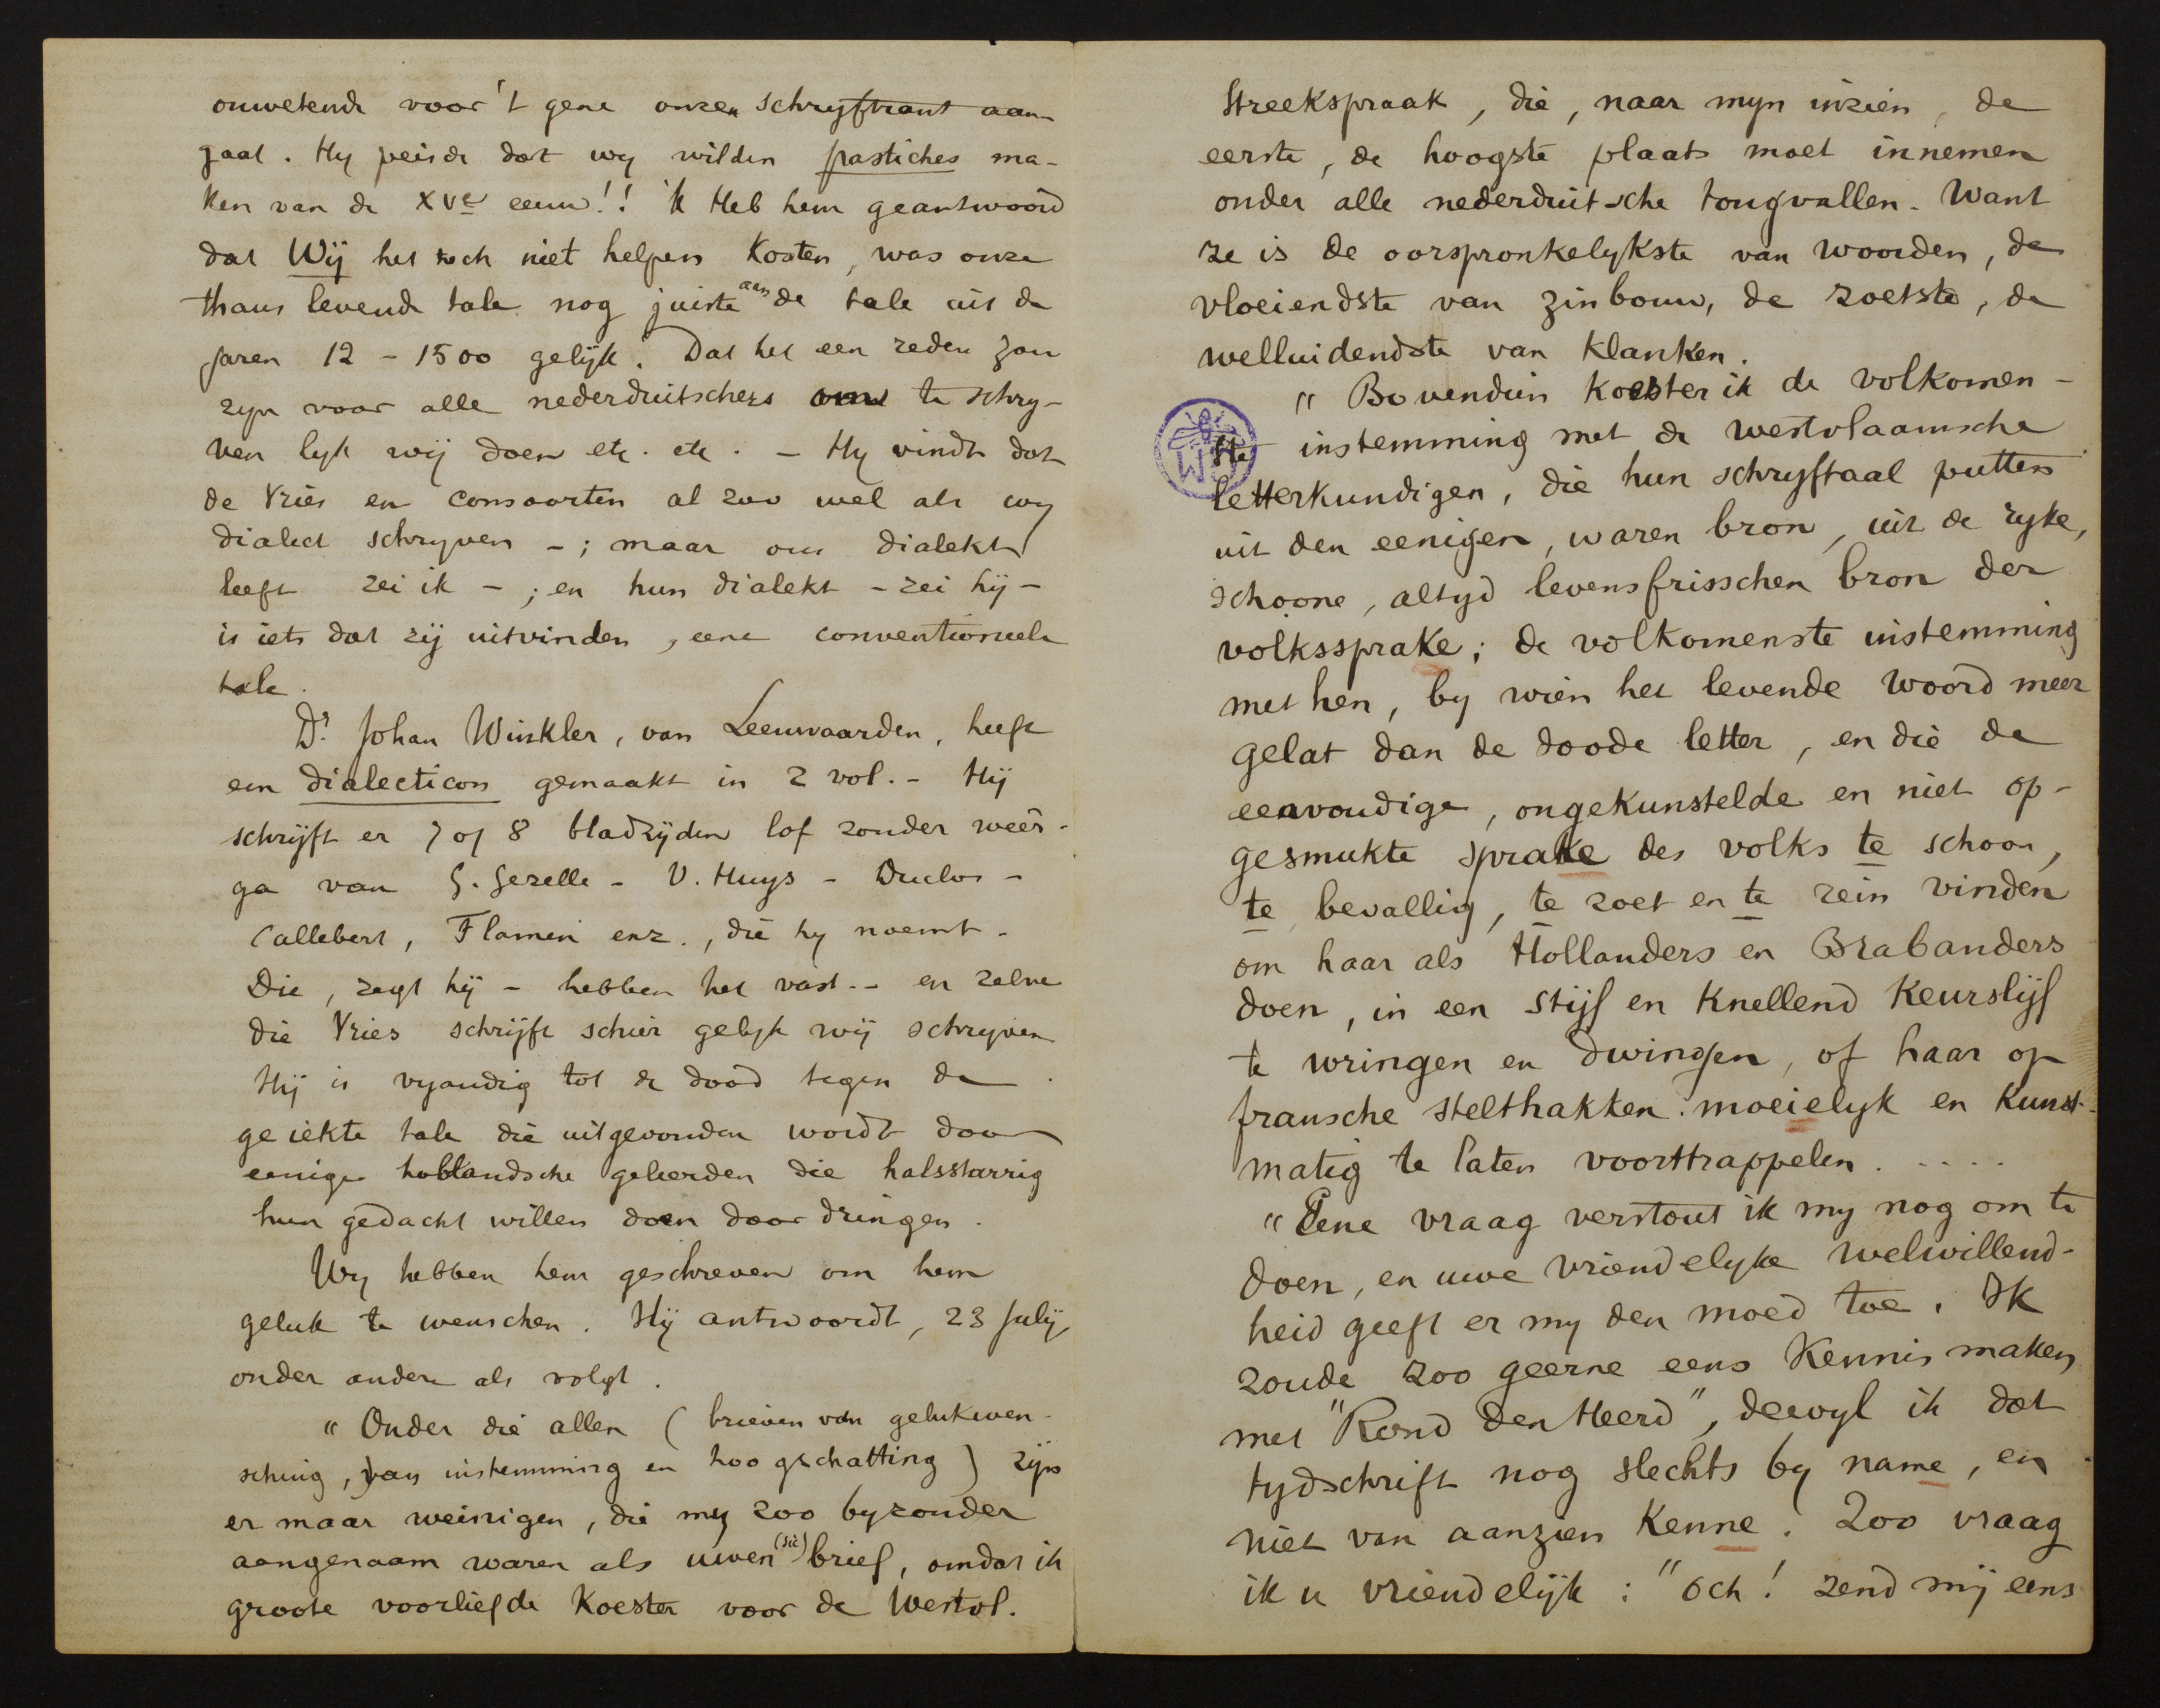 onwetende voor 't gene onzen schryftrant aan-
gaat. Hy peisde dat wy wilden pastiches ma-
ken van de XVe eeuw!! 'k Heb hem geantwoord
dat Wij het toch niet helpen kosten, was onze
thans levende tale nog juiste aan de tale uit de
jaren 12 - 1500 gelijk. Dat het een reden zou
zyn voor alle nederduitschers om te schry-
ven lyk wij doen etc. etc. - Hy vindt dat
de Vries en consoorten al zoo wel als wy
dialect schryven - ; maar ons dialekt
leeft zei ik - ; en hun dialekt - zei hij -
is iets dat zij uitvinden, eene conventioneele
tale.
Dr. Johan Winkler, van Leeuwaarden, heeft
een dialecticon gemaakt in 2 vol. - Hij
schrijft er 7 of 8 bladzijden lof zonder weêr-
ga van G. Gezelle - V. Huys - Duclos -
Callebert, Flamen enz., die hy noemt -
Die, zegt hij - hebben het vast -- en zelve
die Vries schrijft schier gelyk wij schryven
Hij is vyandig tot de dood tegen de
geiekte tale die uitgevonden wordt door
eenige hollandsche geleerden die halsstarrig
hun gedacht willen doen door dringen.
Wy hebben hem geschreven om hem
geluk te wenschen. Hij antwoordt, 23 July,
onder andere als volgt.
" Onder die allen ( brieven van gelukwen-
sching, van instemming en hoogschatting ) zijn
er maar weinigen, die my zoo byzonder
aangenaam waren als uwen (sic) brief, omdat ik
groote voorliefde koester voor de Westvl.
Streekspraak, die, naar myn inzien, de
eerste, de hoogste plaats moet innemen
onder alle nederduitsche tongvallen. Want
ze is de oorspronkelykste van woorden, de
vloeiendste van zinbouw, de zoetste, de
welluidendste van klanken.
" Bovendien koester ik de volkomen-
ste instemming met de westvlaamsche
letterkundigen, die hun schryftaal putten
uit den eenigen, waren bron, uit de ryke,
schoone, altyd levensfrisschen bron der
volkssprake; de volkomenste instemming
met hen, by wien het levende woord meer
gelat dan de doode letter, en die de
eenvoudige, ongekunstelde en niet op-
gesmukte sprake des volks te schoon,
te bevallig, te zoet en te rein vinden
om haar als Hollanders en Brabanders
doen, in een stijf en knellend keurslijf
te wringen en dwingen, of haar op
fransche stelthakken moeielyk en kunst-
matig te laten voorttrappelen . . . . .
" Eene vraag verstout ik my nog om te
doen, en uwe vriendelyke welwillend-
heid geeft er my den moed toe. Ik
zoude zoo geerne eens kennis maken
met "Rond den Heerd", dewyl ik dat
tydschrift nog slechts by name, en
niet van aanzien kenne. Zoo vraag
ik u vriendelijk : "och! zend mij eens